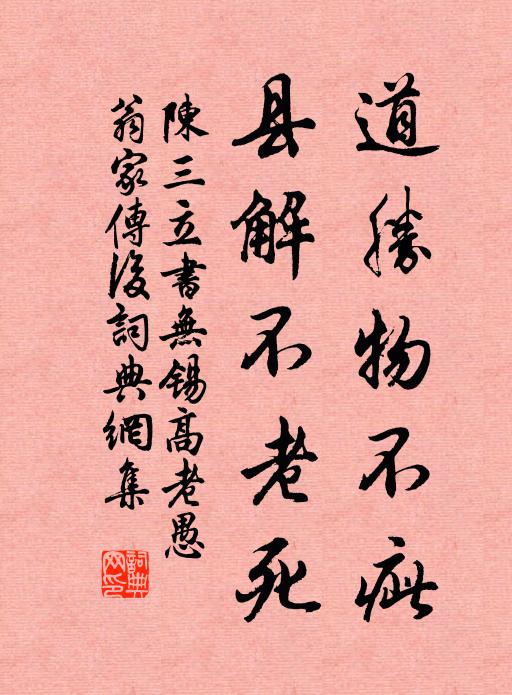 道勝物不疵
县解不老死
陳三立書無锡高老愚
翁家傳後詞典網集
詞典網印